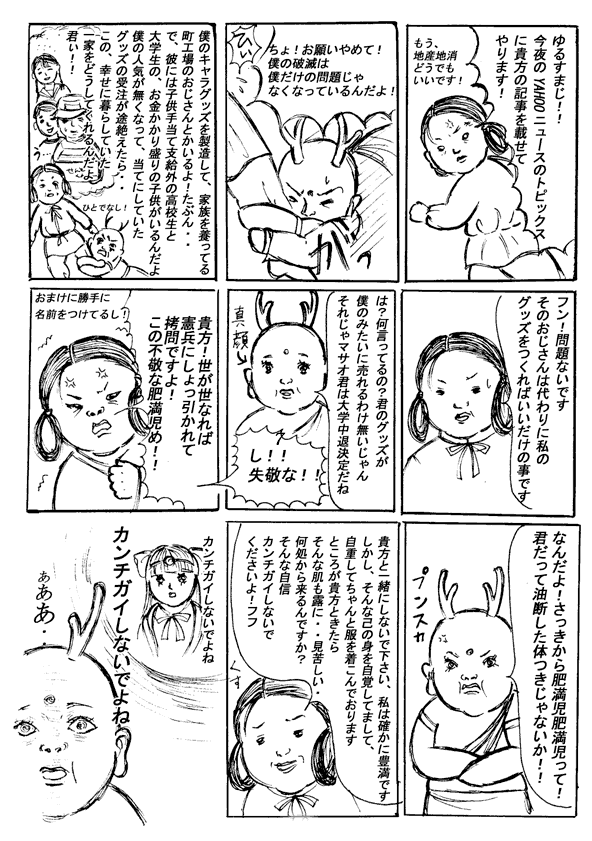 ゆるすまじ！！
今夜のYAHOOニュースのトピックス
に貴方の記事を載せて
やります！
もう、
地産地消
どうでも
いいです！
ひぃ
ちょ！お願いやめて！
僕の破滅は
僕だけの問題じゃ
なくなっているんだよ！
僕のキャラグッズを製造して、家族を養ってる
町工場のおじさんとかいるよ！たぶん・・
で、彼には子供手当て支給外の高校生と
大学生の、お金かかり盛りの子供がいるんだよ
僕の人気が無くなって、当てにしていた
グッズの受注が途絶えたら・・
この、幸せに暮らしていた
一家をどうしてくれるんだよ
君ぃ！！
ひとでなし！
フン！問題ないです
そのおじさんは代わりに私の
グッズをつくればいいだけの事です
は？何言ってるの？君のグッズが
僕のみたいに売れるわけ無いじゃん
それじゃマサオ君は大学中退決定だね
真顔
し！！
失敬な！！
おまけに勝手に
名前をつけてるし！
貴方！世が世なれば
憲兵にしょっ引かれて
拷問ですよ！
この不敬な肥満児め！！
なんだよ！さっきから肥満児肥満児って！
君だって油断した体つきじゃないか！！
プンスカ
貴方と一緒にしないで下さい、私は確かに豊満です
しかし、そんな己の身を自覚してまして、
自重してちゃんと服を着こんでおります
ところが貴方ときたら
そんな肌も露に・・見苦しい・
何処から来るんですか？
そんな自信
カンチガイしないで
くださいよ！フフ
くす
カンチガイしないでよね
カンチガイしないでよね
ああ
ああ・